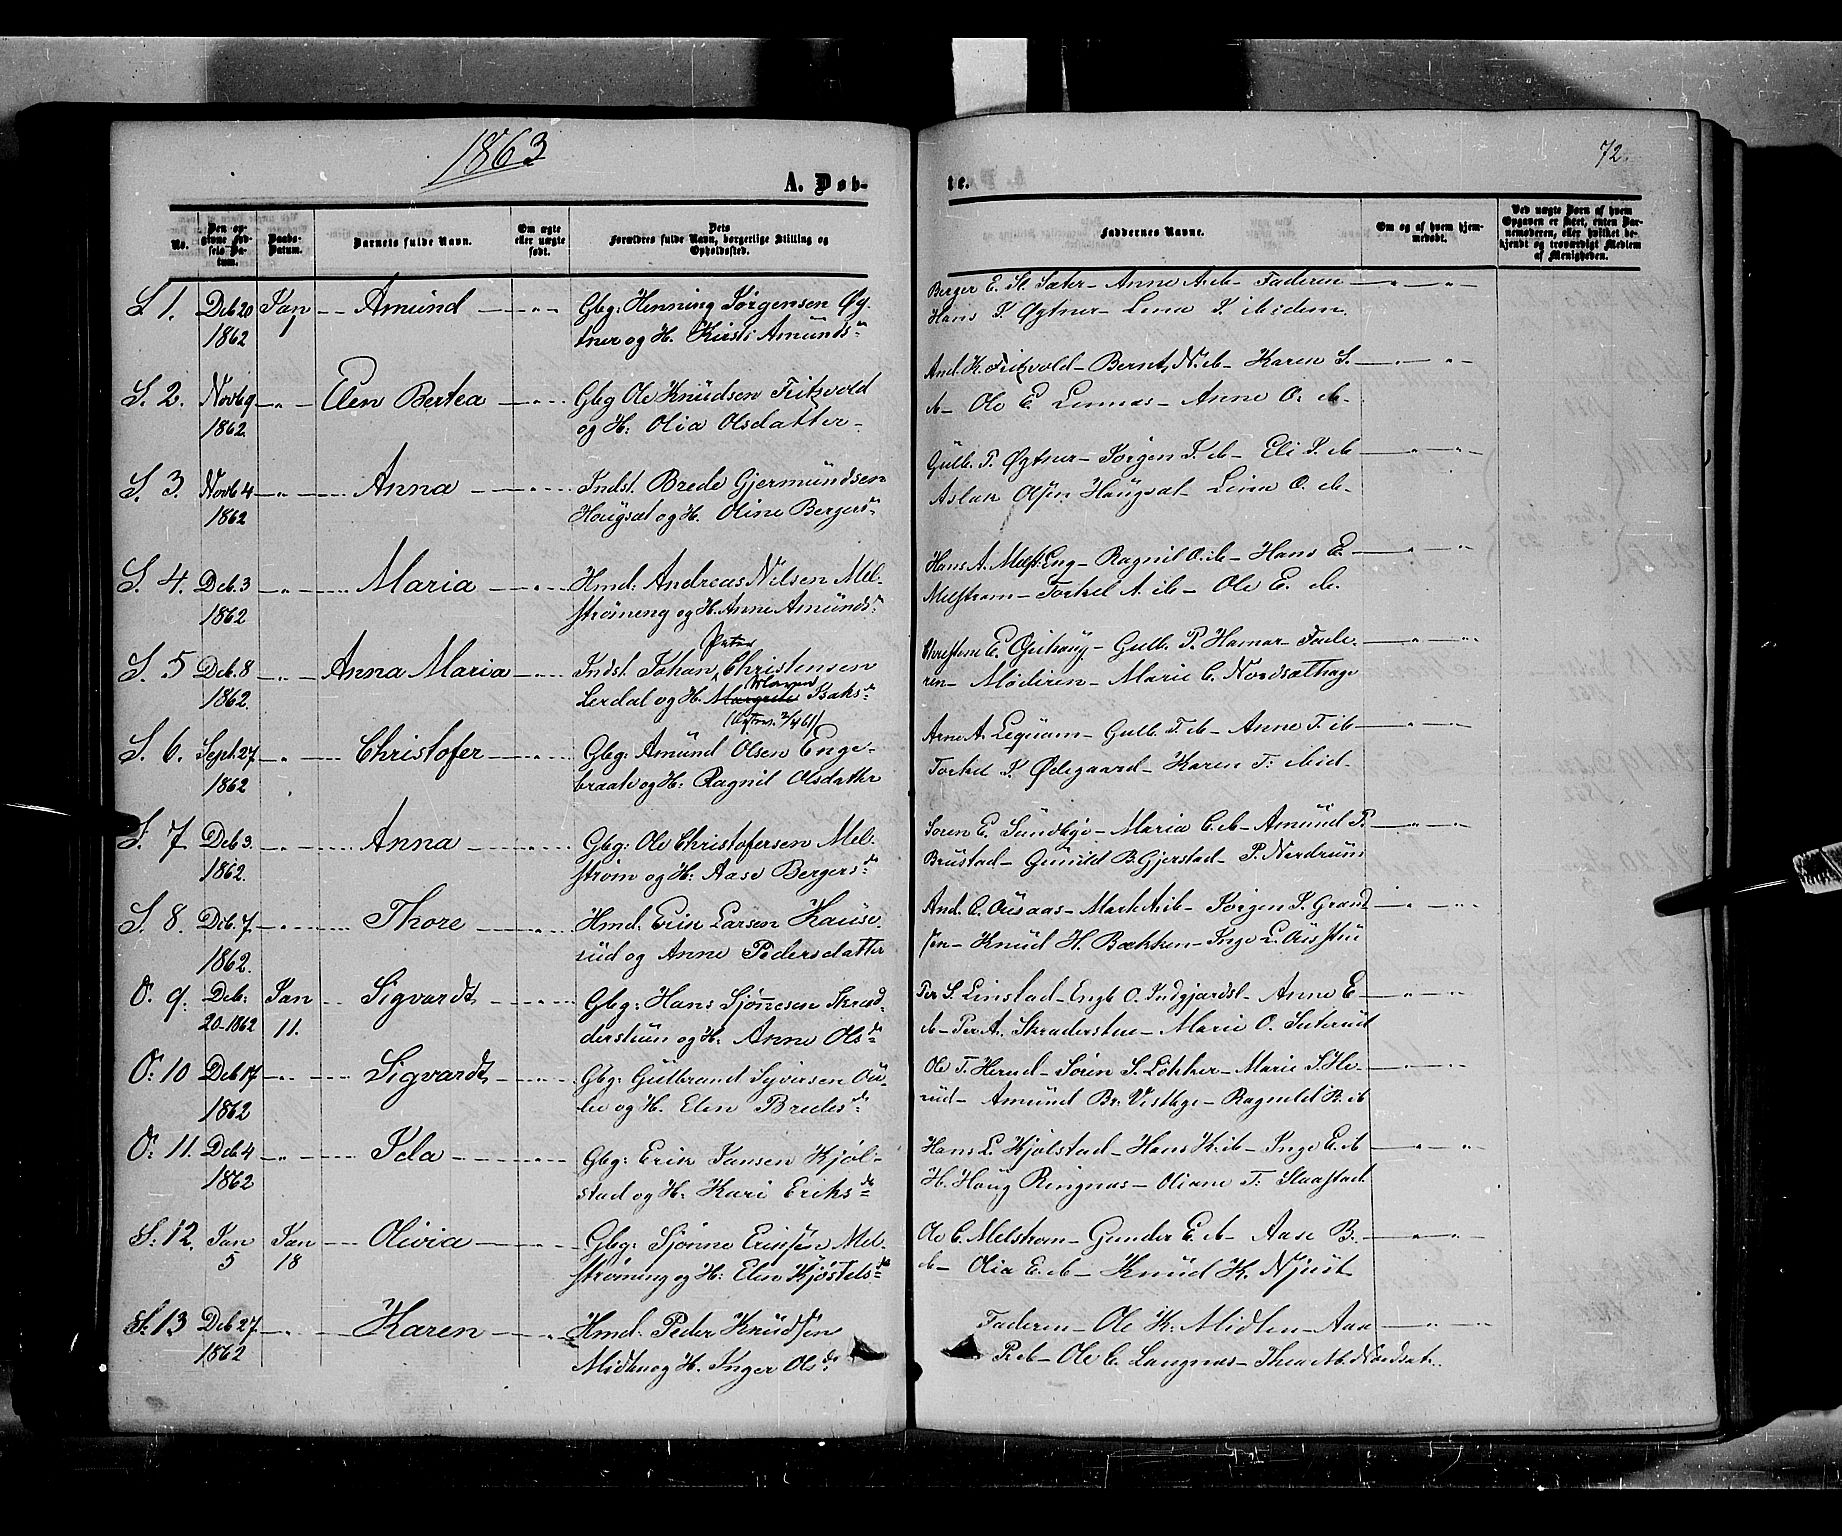 1863
72
A. Døb-
te.
No.
Den op-
givne Fød-
sels-Da-
tum.
Daabs-
Datum.
Barnets fulde Navn.
Om ægte
eller uægte
født.
Dets
Forældres fulde Navn, borgerlige Stilling og
Opholdssted.
Faddernes Navne.
Om og af hvem hjem-
medøbt.
Ved uægte Børn af hvem
Opgaven er skeet, enten Bar-
nemoderen, eller hvilket be-
kjendt og troværdigt Medlem
af Menigheden.
S. 1. Deb 20 Jan Amund Gbg: Henning Jørgensen Øg-
1862 1 tner og H. Kirsti Amunds d
Berger E. St. Sæter - Anne A. ib - Faderen
Hans J. Øgtner - Lena J. ibidem
S. 2. Novb 9 Elen Bertea Gbg Ole Knudsen Fritzvold
1862. og H: Olia Olsdatter
And. K. Fritzvold - Bernt N. ib - Karen S.
ib - Ole E. Lennæs - Anne O. ib -
S. 3. Novb 4 Anna Indst. Brede Gjermundsen
1862 Hougsæt og H. Oline Bergers d
Gulb. P. Øgtner - Jørgen J. ib - Eli J. ib
Aslak Olsen Haugsæt - Lina O. ib -
S. 4. Deb. 3 Maria Hmd: Andreas Nilsen Mel-
1862 strømeng og H. Anne Amunds d
Hans A. Melst: Eng - Ragnil O. ib - Hans E.
Melstrøm - Torkel A. ib - Ole E. ib.
S. 5 Deb. 8 Anna Maria Indst. Johan Peter Christensen
1862. Lerdal og H. Margrete Maren Isaks d
E. - Gulb. P. Hamar - Fade-
ren - Moderen - Marie C. Nordsæthage
S. 6. Sept. 27 Christofer Gbg: Amund Olsen Enge-
1862 braate og H: Ragnil Olsdatter
Arne A. - Gulb. T. ib - Anne T. ib
Torkel J. Ødegaard - Karen T: ibid -
S. 7 Deb 3. Anna Gbg: Ole Christofersen Mel-
1862. strøm og H: Aase Bergers d
Søren E. Sundbye - Maria C. ib - Amund P.
Brustad - Gunild B. Gjerstad - P. Nerdrum
S. 8. Deb. 7 Thore Hmd: Erik Larsen Kause-
1862. rud og Anne Pedersdatter
And. C. Ousaas - Mark A. ib - Jørgen J.
- Knud H. Bækken - Inge L.
O. 9. Deb: Jan Sigvardt Gbg: Hans Sjønnesen Skræd-
20-1862 11. derstuen og H: Anne Ols d
Per S. Linstad - Engb O. - Anne E
ib - Per A. Skræderstue - Marie O.
O: 10 Deb 17 Sigvardt Gbg: Gulbrand Syversen Ou-
1862 og H. Elen Bredes d
Ole T. Herud - Søren S. Løkker - Marie S. He-
rud - Amund Br. Vestbye - Ragnild B. ib
O: 11. Deb 4 Ida Gbg: Erik Jansen Kjøl-
1862 stad og H: Kari Eriks d
Hans L. Kjølstad - Hans K. ib - Inge E. ib
H. Haug Ringnæs - Oliane T. Slaastad
S: 12. Jan Jan Olivia Gbg: Sjønne Eriksen Mel-
5 18 strømeng og H: Elen Kjøstels d
Ole C. Melstrøm - Gunder E. ib - Aase B.
ib - Olia E. ib - Knud K. Njust
S: 13 Deb 27 Karen Hmd: Peder Knudsen
1862 og H. Inger Ols d
Faderen - Ole K: -
P. ib - Ole C. Langnæs - Thea M. Nordsæt.